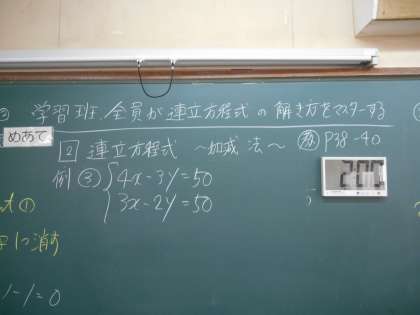 学習班、全員が連立方程式の解き方をマスターする
めあて
2 連立方程式 ～加減法～ 教 P38-40
例 ③ { 4x-3y=50
3x-2y=50
2:00
式の
に消す
y-y=0